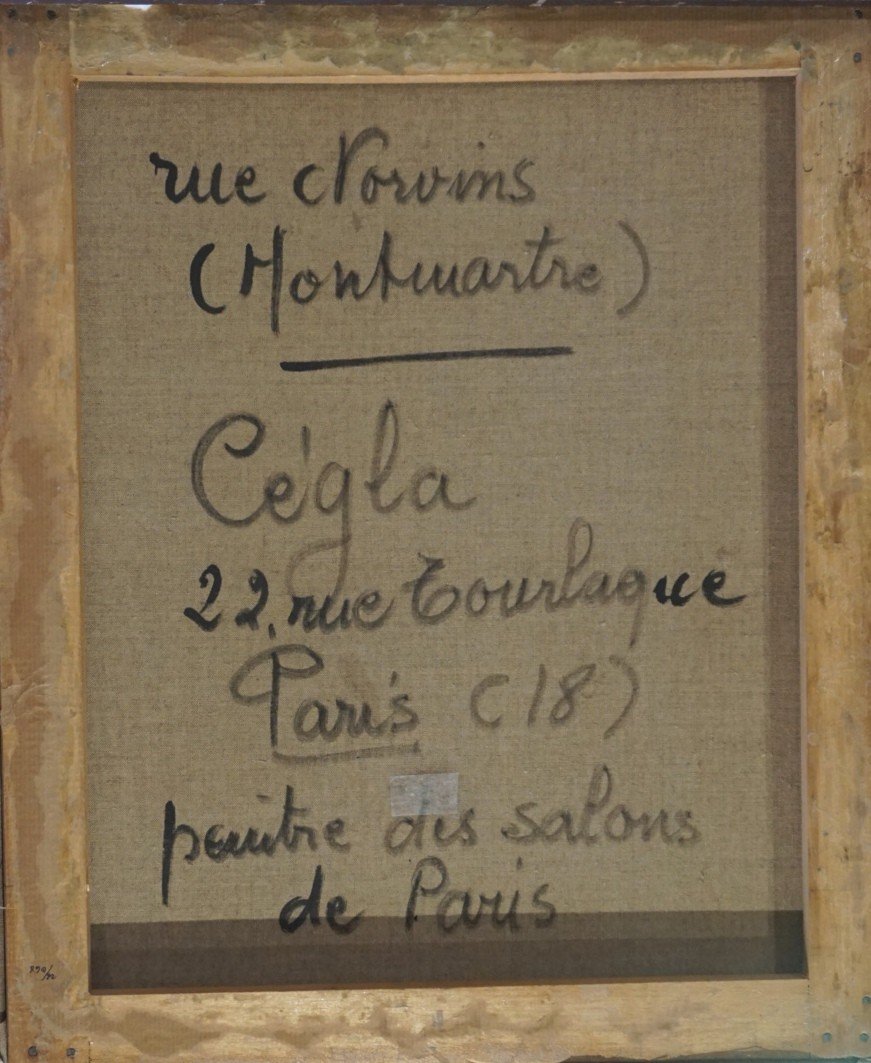 rue Norvins
(Montmartre)
Cégla
22, rue Tourlaque
Paris (18)
peintre des salons
de Paris